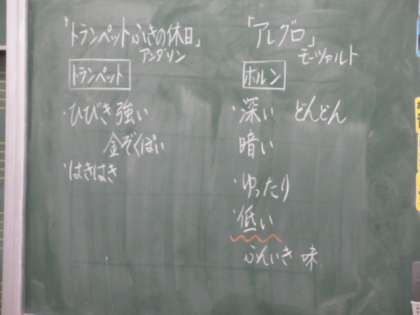 「トランペットふきの休日」
アンダソン
トランペット
・ひびき強い
金ぞくぽい
・はきはき
「アレグロ」
モーツァルト
ホルン
・深い どんどん
暗い
・ゆったり
・低い
ふんいき 味